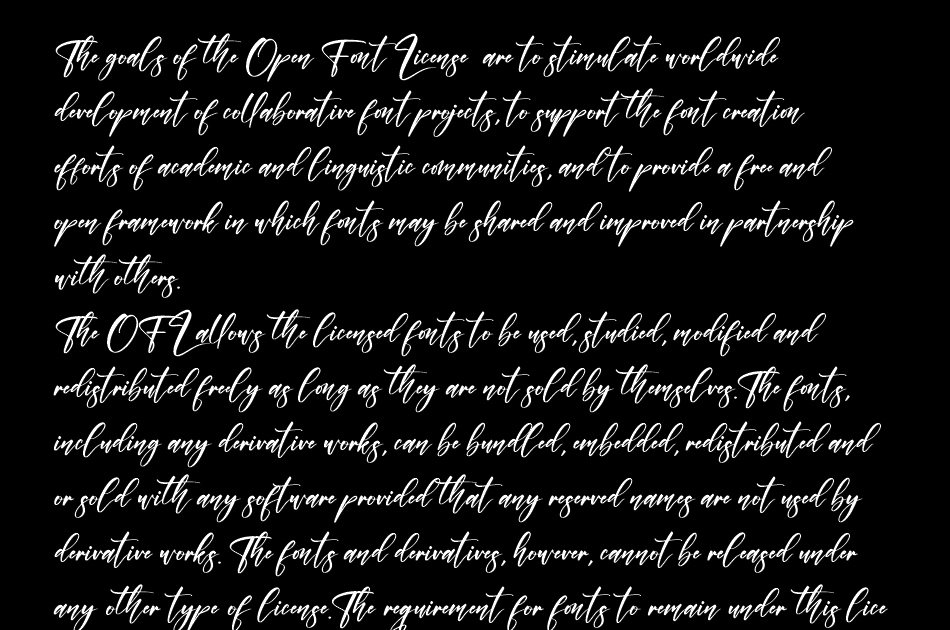 The goals of the Open Font License are to stimulate worldwide
development of collaborative font projects, to support the font creation
efforts of academic and linguistic communities, and to provide a free and
open framework in which fonts may be shared and improved in partnership
with others.
The OFL allows the licensed fonts to be used, studied, modified and
redistributed freely as long as they are not sold by themselves. The fonts,
including any derivative works, can be bundled, embedded, redistributed and
or sold with any software provided that any reserved names are not used by
derivative works. The fonts and derivatives, however, cannot be released under
any other type of license. The requirement for fonts to remain under this lice